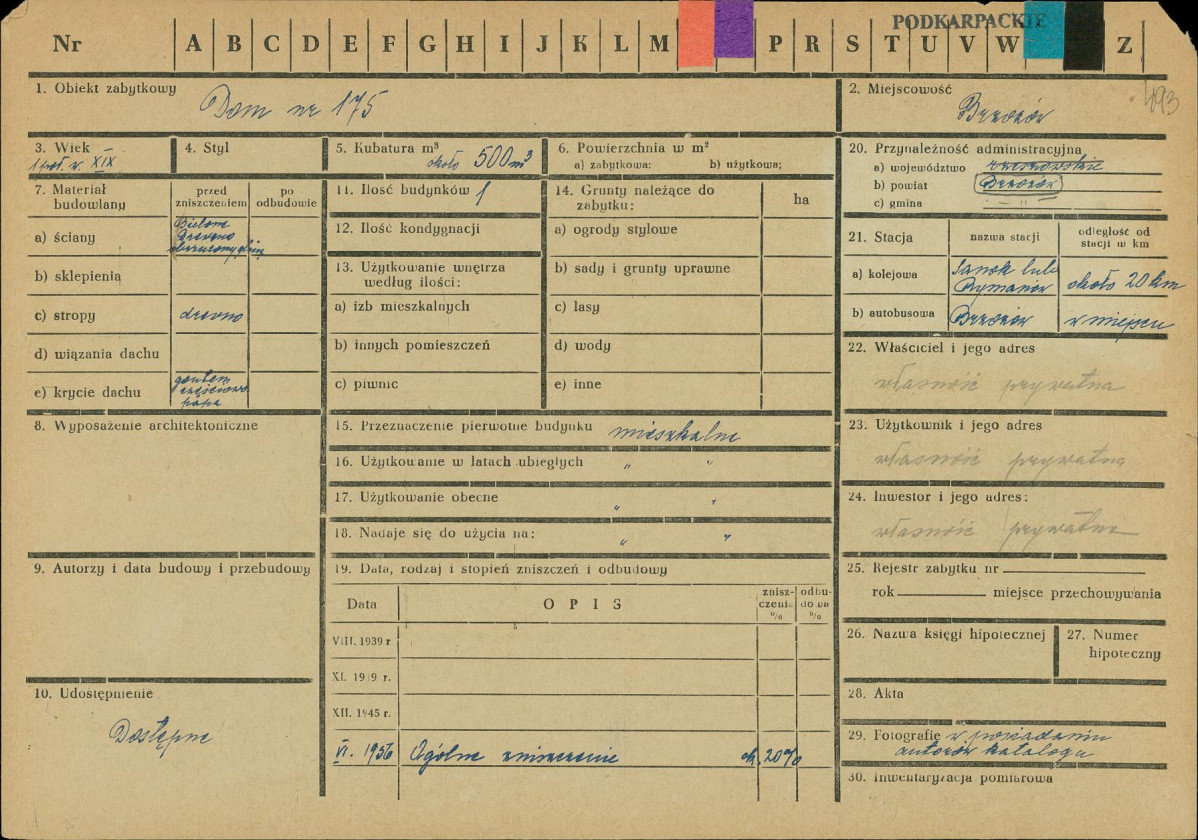 PODKARPACKIE
Nr A B C D E F G H I J K L M P R S T U V W Z
1. Obiekt zabytkowy
Dom nr 175
2. Miejscowość
Brzozów
493
3. Wiek
1 poł. w. XIX
4. Styl
5. Kubatura m³
około 500 m³
6. Powierzchnia w m²
a) zabytkowa: b) użytkowa;
7. Materiał budowlany
przed zniszczeniem
po odbudowie
a) ściany
Bielone
Drewno
b) sklepienia
c) stropy drewno
d) wiązania dachu
e) krycie dachu
gontem
częściowo
papa
8. Wyposażenie architektoniczne
9. Autorzy i data budowy i przebudowy
10. Udostępnienie
Dostępne
11. Ilość budynków 1
12. Ilość kondygnacji
13. Użytkowanie wnętrza
według ilości:
a) izb mieszkalnych
b) innych pomieszczeń
c) piwnic
14. Grunty należące do
zabytku:
ha
a) ogrody stylowe
b) sady i grunty uprawne
c) lasy
d) wody
e) inne
15. Przeznaczenie pierwotne budynku mieszkalne
16. Użytkowanie w latach ubiegłych " "
17. Użytkowanie obecne " "
18. Nadaje się do użycia na: " "
19. Data, rodzaj i stopień zniszczeń i odbudowy
Data OPIS zniszczenia % odbudowa %
VIII. 1939 r.
XI. 1939 r.
XII. 1945 r.
VI. 1956 Ogólne zniszczenie ok. 20%
20. Przynależność administracyjna
a) województwo rzeszowskie
b) powiat Brzozów
c) gmina — " —
21. Stacja
nazwa stacji
odległość od stacji w km
a) kolejowa
Sanok lub
Rymanów
około 20 km
b) autobusowa Brzozów w miejscu
22. Właściciel i jego adres
własność prywatna
23. Użytkownik i jego adres
własność prywatna
24. Inwestor i jego adres:
własność prywatna
25. Rejestr zabytku nr
rok miejsce przechowywania
26. Nazwa księgi hipotecznej
27. Numer
hipoteczny
28. Akta
29. Fotografie w posiadaniu
autorów katalogu
30. Inwentaryzacja pomiarowa